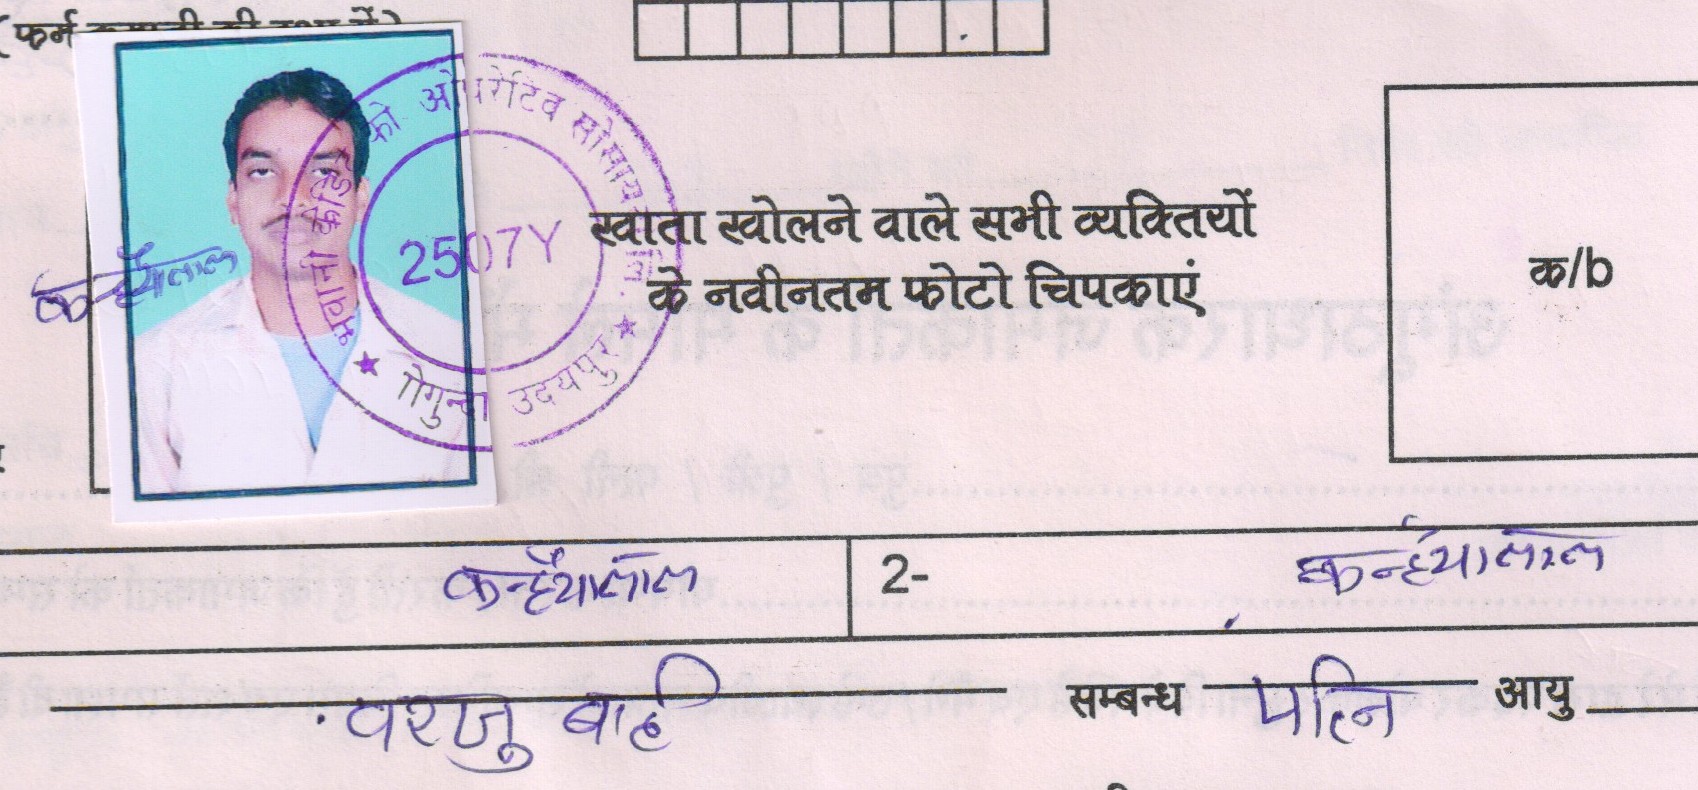 (फर्म
को ओपरेटिव सोसाय
भवानी क्रेडिट
2507Y
गोगुन्दा उदयपुर
खाता खोलने वाले सभी व्यक्तियों
के नवीनतम फोटो चिपकाएं
क/b
कन्हैयालाल
कन्हैयालाल 2- कन्हैयालाल
वरजु बाई सम्बन्ध पत्नि आयु